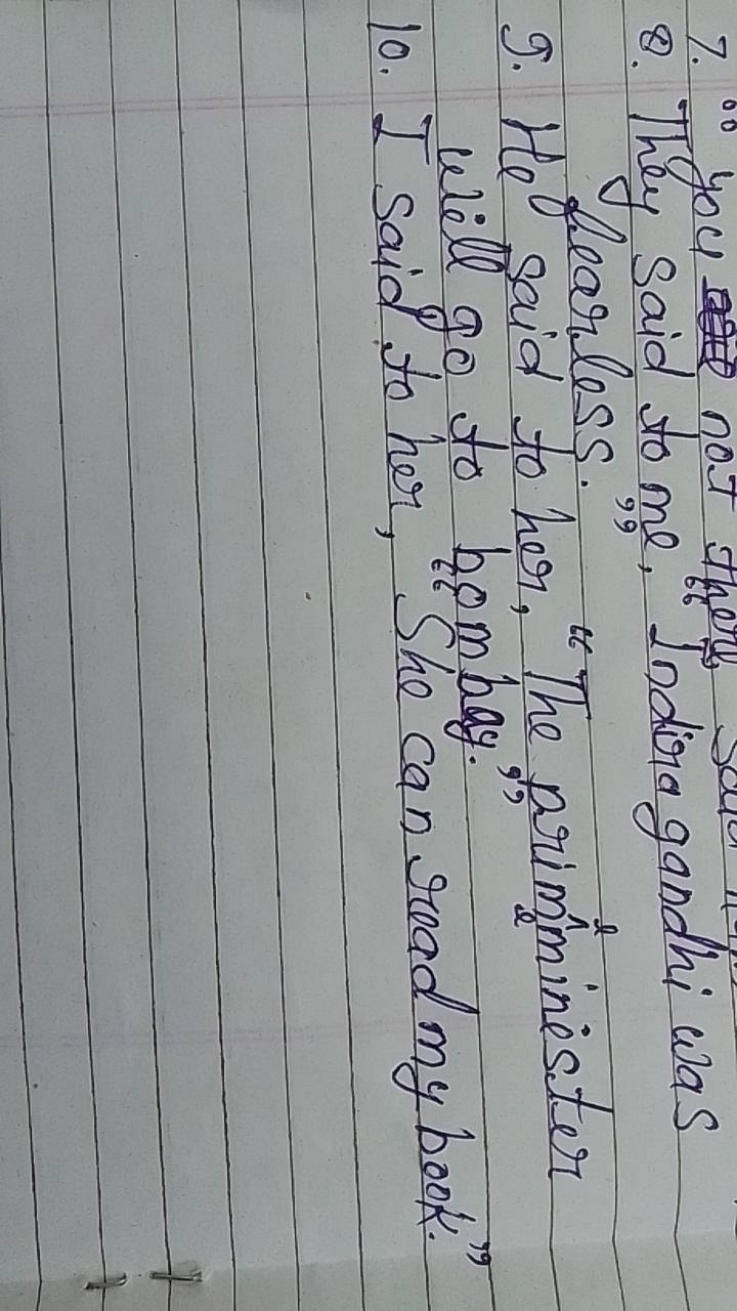 7. "you not there" said
8. They said to me, "Indira gandhi was
fearless."
9. He said to her, "The prime minester
will go to bombay."
10. I said to her, "She can read my book."